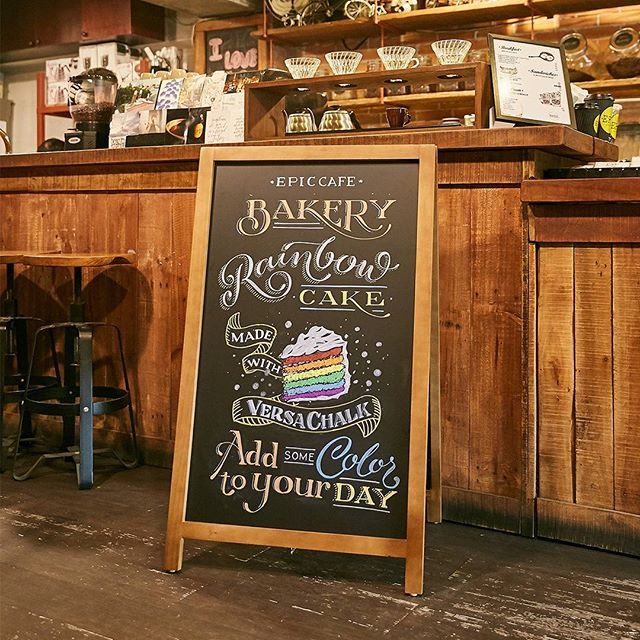 I LOVE
Breakfast
Sandwiches
·EPIC CAFE·
BAKERY
Rainbow
CAKE
MADE
WITH
VERSACHALK
Add SOME Color
to your DAY